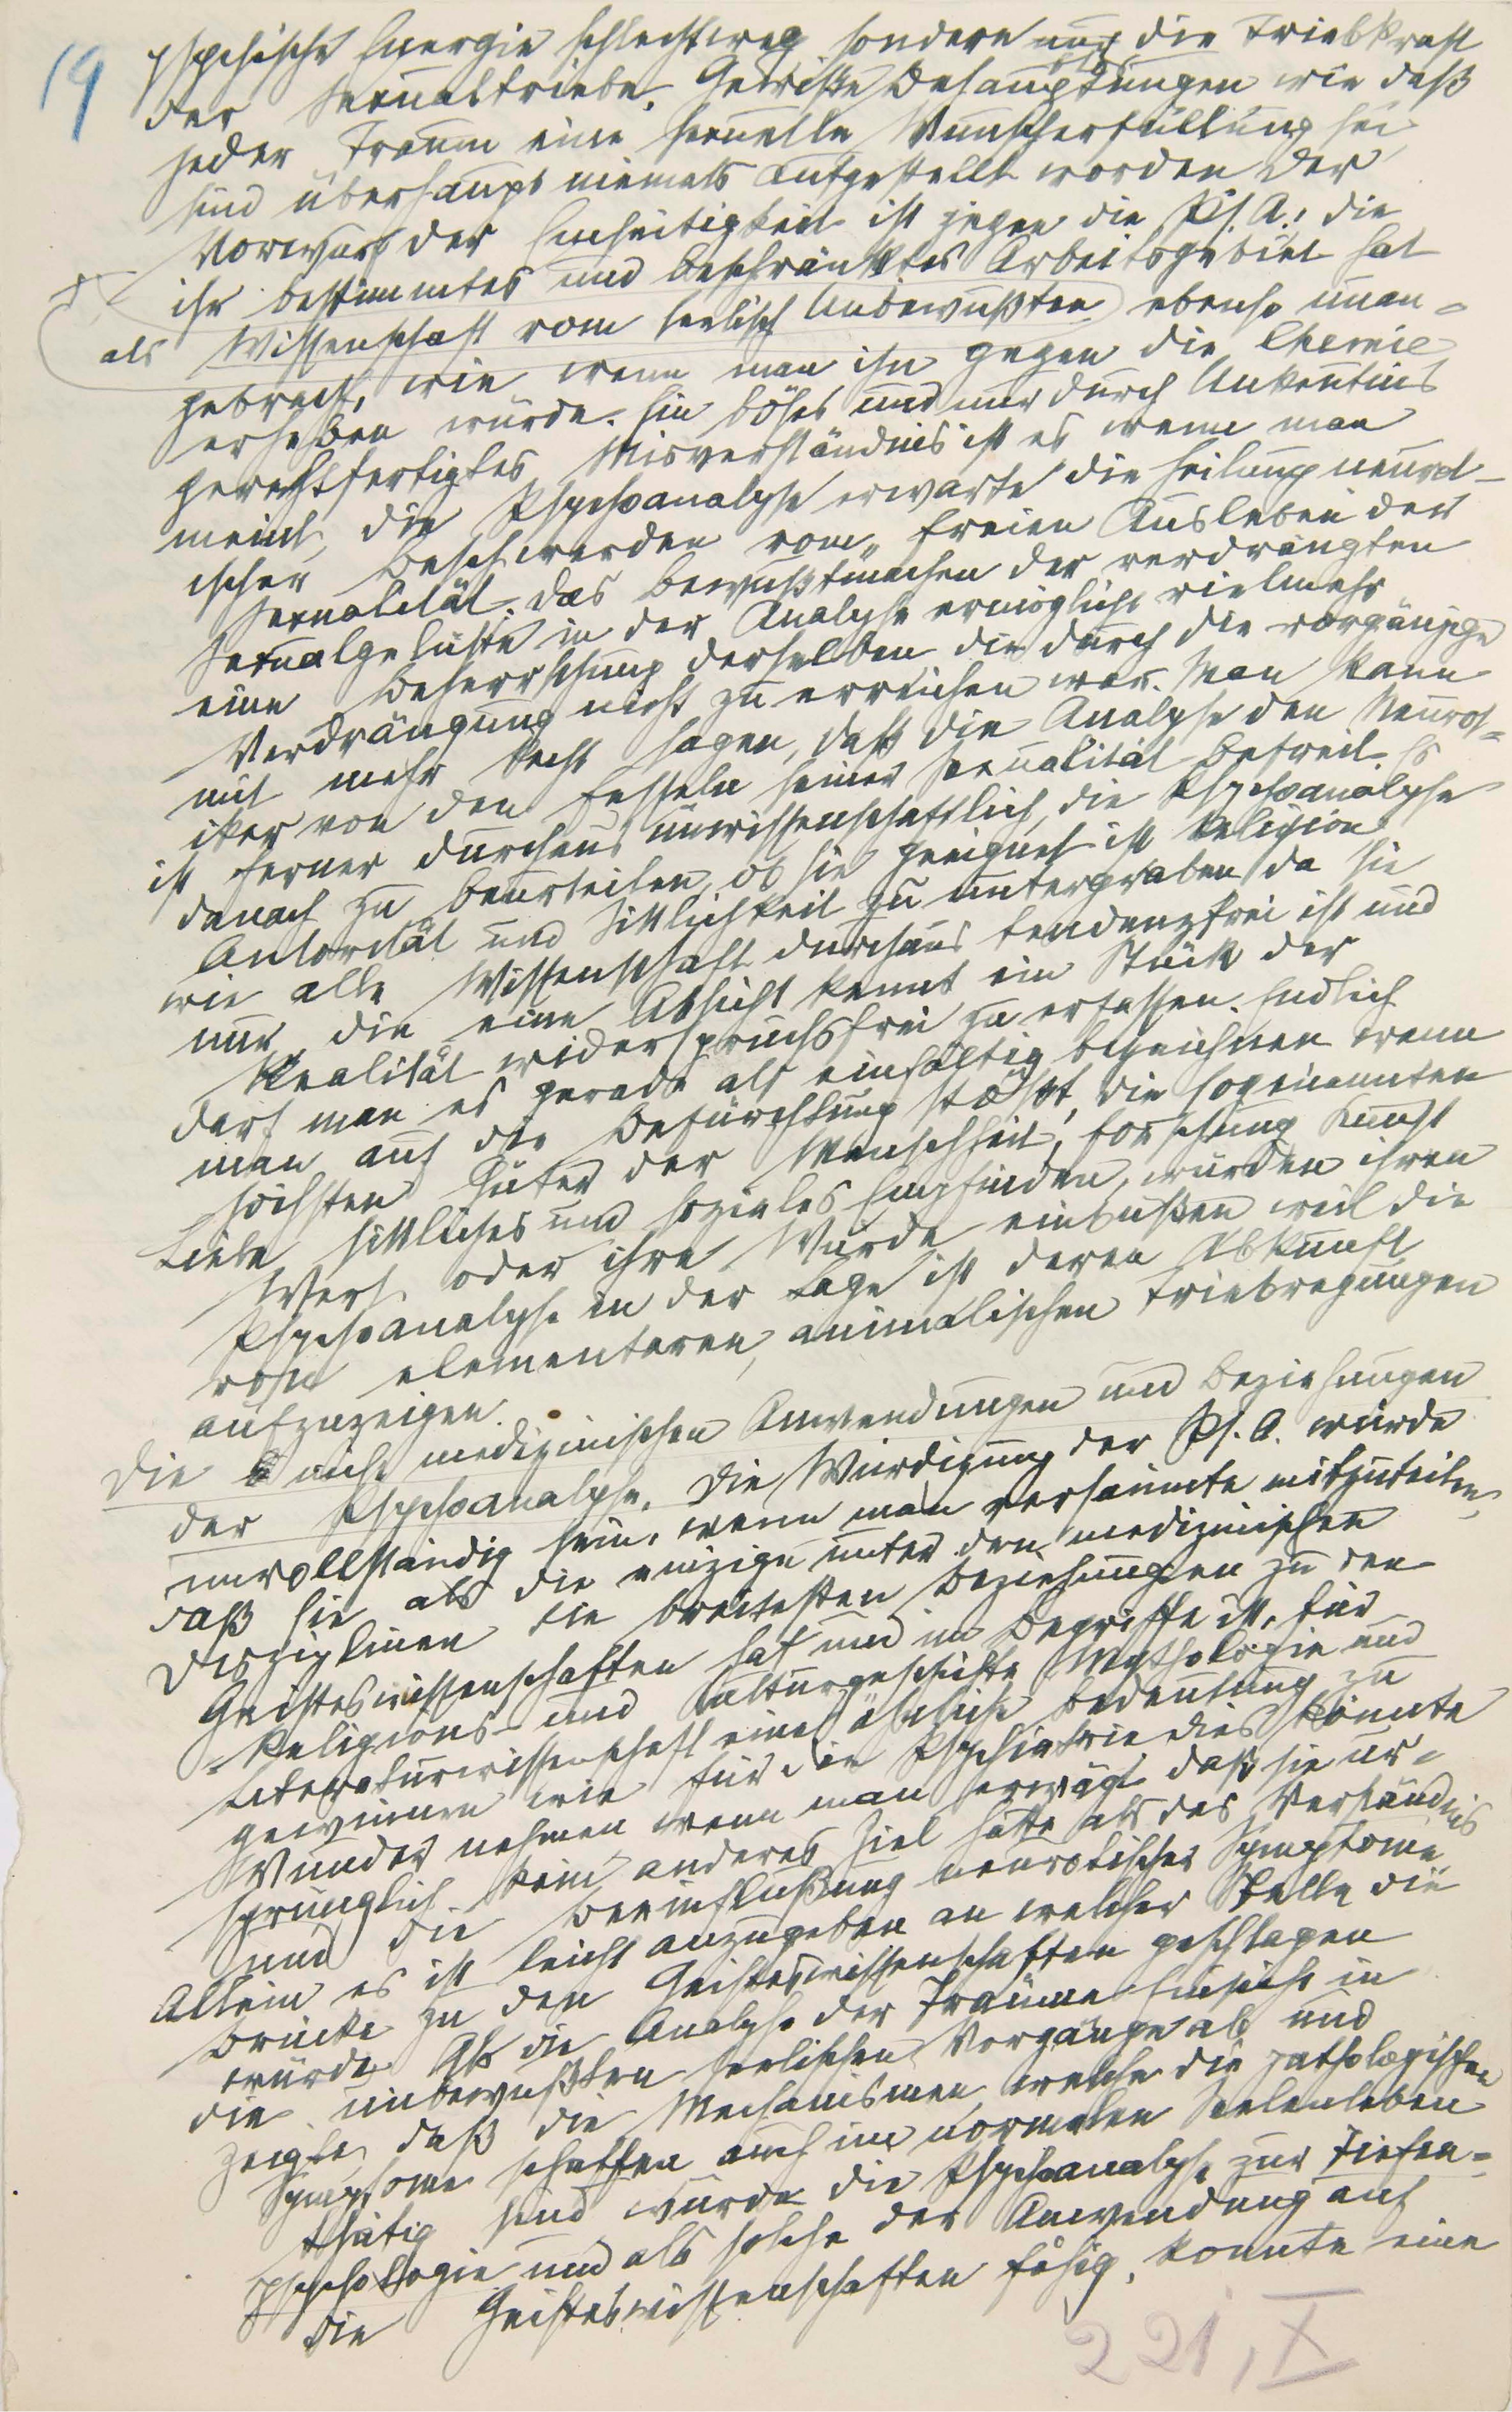 19
psychische Energie schlechtweg sondern nur die Triebkraft
der Sexualtriebe. Gewisse Behauptungen wie daß
jeder Traum eine sexuelle Wunscherfüllung sei
sind überhaupt niemals aufgestellt worden der
Vorwurf der Einseitigkeit ist gegen die Ps. A., die
ihr bestimmtes und beschränktes Arbeitsgebiet hat
als Wissenschaft vom seelisch Unbewußten ebenso unan-
gebracht, wie wenn man ihn gegen die Chemie
erheben würde. Ein böses und nur durch Unkentnis
gerechtfertigtes Misverständnis ist es wenn man
meint, die Psychoanalyse erwarte die Heilung neurot-
ischer Beschwerden vom „freien Ausleben der
Sexualität. Das Bewußtmachen der verdrängten
Sexualgelüste in der Analyse ermöglicht vielmehr
eine Beherrschung derselben die durch die vorgängige
Verdrängung nicht zu erreichen war. Man kann
mit mehr Recht sagen, daß die Analyse den Neurot-
iker von den Fesseln seiner Sexualität befreit. Es
ist ferner durchaus unwissenschaftlich, die Psychoanalyse
danach zu beurteilen, ob sie geeignet ist Religion
Autorität und Sittlichkeit zu untergraben da sie
wie alle Wissenschaft durchaus tendenzfrei ist und
nur die eine Absicht kennt ein Stück der
Realität widerspruchsfrei zu erfassen. Endlich
darf man es gerade als einfältig bezeichnen wenn
man auf die Befürchtung stößt, die sogenannten
höchsten Güter der Menschheit, Forschung Kunst
Liebe sittliches und soziales Empfinden, würden ihren
Wert oder ihre Würde einbüßen weil die
Psychoanalyse in der Lage ist deren Abkunft
von elementaren, animalischen Triebregungen
aufzuzeigen.
Die nicht medizinischen Anwendungen und Beziehungen
der Psychoanalyse. Die Würdigung der Ps. A. würde
unvollständig sein, wenn man versäumte mitzuteilen,
daß sie als die einzige unter den medizinischen
Disziplinen die breitesten Beziehungen zu den
Geisteswissenschaften hat und im Begriffe ist, für
Religions- und Kulturgeschichte Mythologie und
Literaturwissenschaft eine änliche Bedeutung zu
gewinnen wie für die Psychiatrie dies könnte
Wunder nehmen wenn man erwägt daß sie ur-
sprünglich kein anderes Ziel hatte als das Verständnis
und die Beeinflußung neurotischer Symptome
Allein es ist leicht anzugeben an welcher Stelle die
Brücke zu den Geisteswissenschaften geschlagen
wurde Als die Analyse der Träume Einsicht in
die unbewußten seelischen Vorgänge ab und
zeigte, daß die Mechanismen, welche die pathologischen
Symptome schaffen auch im normalen Seelenleben
thätig sind wurde die Psychoanalyse zur Tiefen-
psychologie und als solche der Anwendung auf
die Geisteswissenschaften fähig, konnte eine
221, X